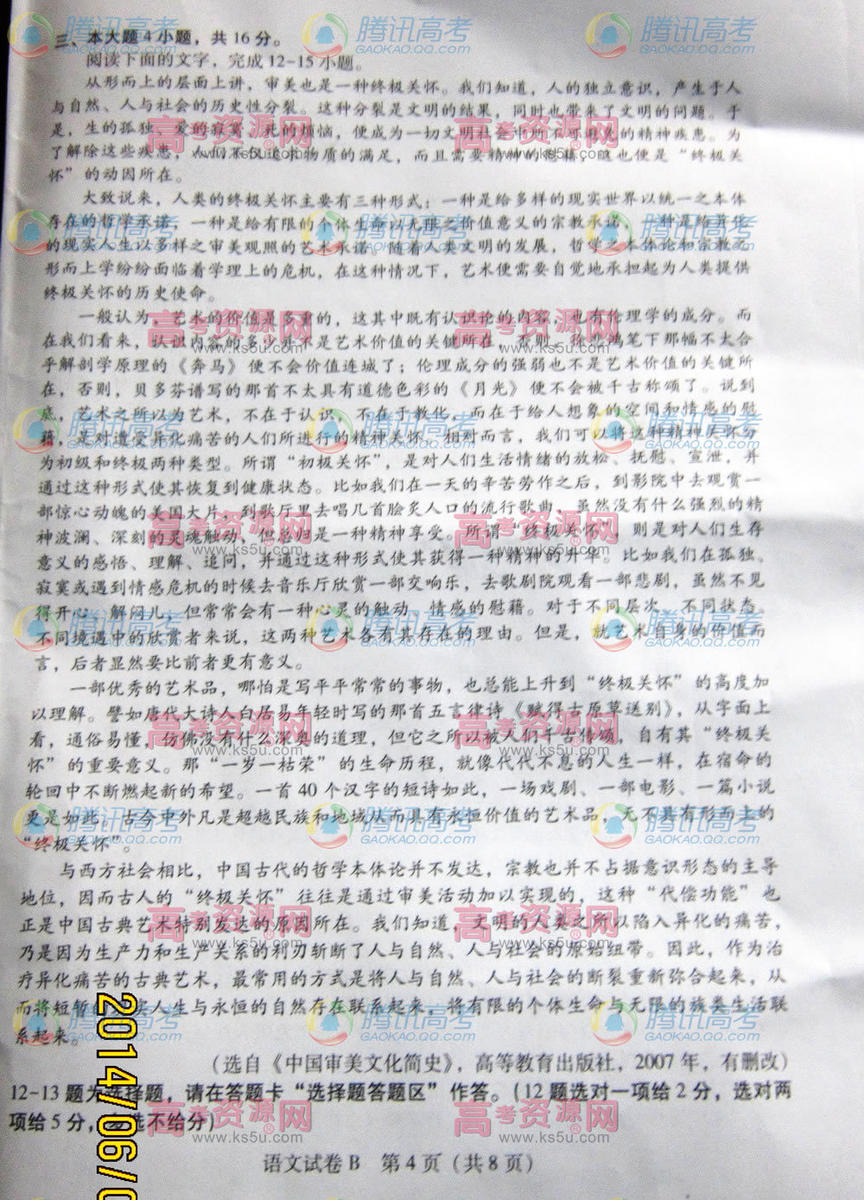 三、本大题4小题，共16分。
阅读下面的文字，完成12-15小题。
从形而上的层面上讲，审美也是一种终极关怀。我们知道，人的独立意识，产生于人
与自然、人与社会的历史性分裂。这种分裂是文明的结果，同时也带来了文明的问题。于
是，生的孤独、爱的寂寞、死的烦恼，便成为一切文明社会中所不可避免的精神疾患。为
了解除这些疾患，人们不仅追求物质的满足，而且需要精神的慰藉，这也便是“终极关
怀”的动因所在。
大致说来，人类的终极关怀主要有三种形式：一种是给多样的现实世界以统一之本体
存在的哲学承诺，一种是给有限的个体生命以无限之价值意义的宗教承诺，一种是给
的现实人生以多样之审美观照的艺术承诺。随着人类文明的发展，哲学之本体论和宗教之
形而上学纷纷面临着学理上的危机，在这种情况下，艺术便需要自觉地承担起为人类提供
终极关怀的历史使命。
一般认为，艺术的价值是多重的，这其中既有认识论的内容，也有伦理学的成分。而
在我们看来，认识内容的多少并不是艺术价值的关键所在，否则，徐悲鸿笔下那幅不太合
乎解剖学原理的《奔马》便不会价值连城了；伦理成分的强弱也不是艺术价值的关键所
在，否则，贝多芬谱写的那首不太具有道德色彩的《月光》便不会被千古称颂了。说到
底，艺术之所以为艺术，不在于认识，不在于教化，而在于给人想象的空间和情感的慰
藉，是对遭受异化痛苦的人们所进行的精神关怀。相对而言，我们可以将这种精神关怀分
为初级和终极两种类型。所谓“初极关怀”，是对人们生活情绪的放松、抚慰、宣泄，并
通过这种形式使其恢复到健康状态。比如我们在一天的辛苦劳作之后，到影院中去观赏一
部惊心动魄的美国大片，到歌厅里去唱几首脍炙人口的流行歌曲，虽然没有什么强烈的精
神波澜、深刻的灵魂触动，但总归是一种精神享受。所谓“终极关怀”，则是对人们生存
意义的感悟、理解、追问，并通过这种形式使其获得一种精神的升华。比如我们在孤独、
寂寞或遇到情感危机的时候去音乐厅欣赏一部交响乐，去歌剧院观看一部悲剧，虽然不见
得开心、解闷儿，但常常会有一种心灵的触动、情感的慰藉。对于不同层次、不同状态、
不同境遇中的欣赏者来说，这两种艺术各有其存在的理由。但是，就艺术自身的价值而
言，后者显然要比前者更有意义。
一部优秀的艺术品，哪怕是写平平常常的事物，也总能上升到“终极关怀”的高度加
以理解。譬如唐代大诗人白居易年轻时写的那首五言律诗《赋得古原草送别》，从字面上
看，通俗易懂，仿佛没有什么深奥的道理，但它之所以被人们千古传颂，自有其“终极关
怀”的重要意义。那“一岁一枯荣”的生命历程，就像代代不息的人生一样，在宿命的
轮回中不断燃起新的希望。一首40个汉字的短诗如此，一场戏剧、一部电影、一篇小说
更是如此。古今中外凡是超越民族和地域从而具有永恒价值的艺术品，无不具有形而上的
“终极关怀”。
与西方社会相比，中国古代的哲学本体论并不发达，宗教也并不占据意识形态的主导
地位，因而古人的“终极关怀”往往是通过审美活动加以实现的，这种“代偿功能”也
正是中国古典艺术特别发达的原因所在。我们知道，文明的人类之所以陷入异化的痛苦，
乃是因为生产力和生产关系的利刃斩断了人与自然、人与社会的原始纽带。因此，作为治
疗异化痛苦的古典艺术，最常用的方式是将人与自然、人与社会的断裂重新弥合起来，从
而将短暂的现实人生与永恒的自然存在联系起来，将有限的个体生命与无限的族类生活联
系起来。
（选自《中国审美文化简史》，高等教育出版社，2007年，有删改）
12~13题为选择题，请在答题卡“选择题答题区”作答。（12题选对一项给2分，选对两
项给5分，多选不给分）
语文试卷B 第4页（共8页）
2014/06/0
腾讯高考
GAOKAO.QQ.COM
高考资源网
www.ks5u.com